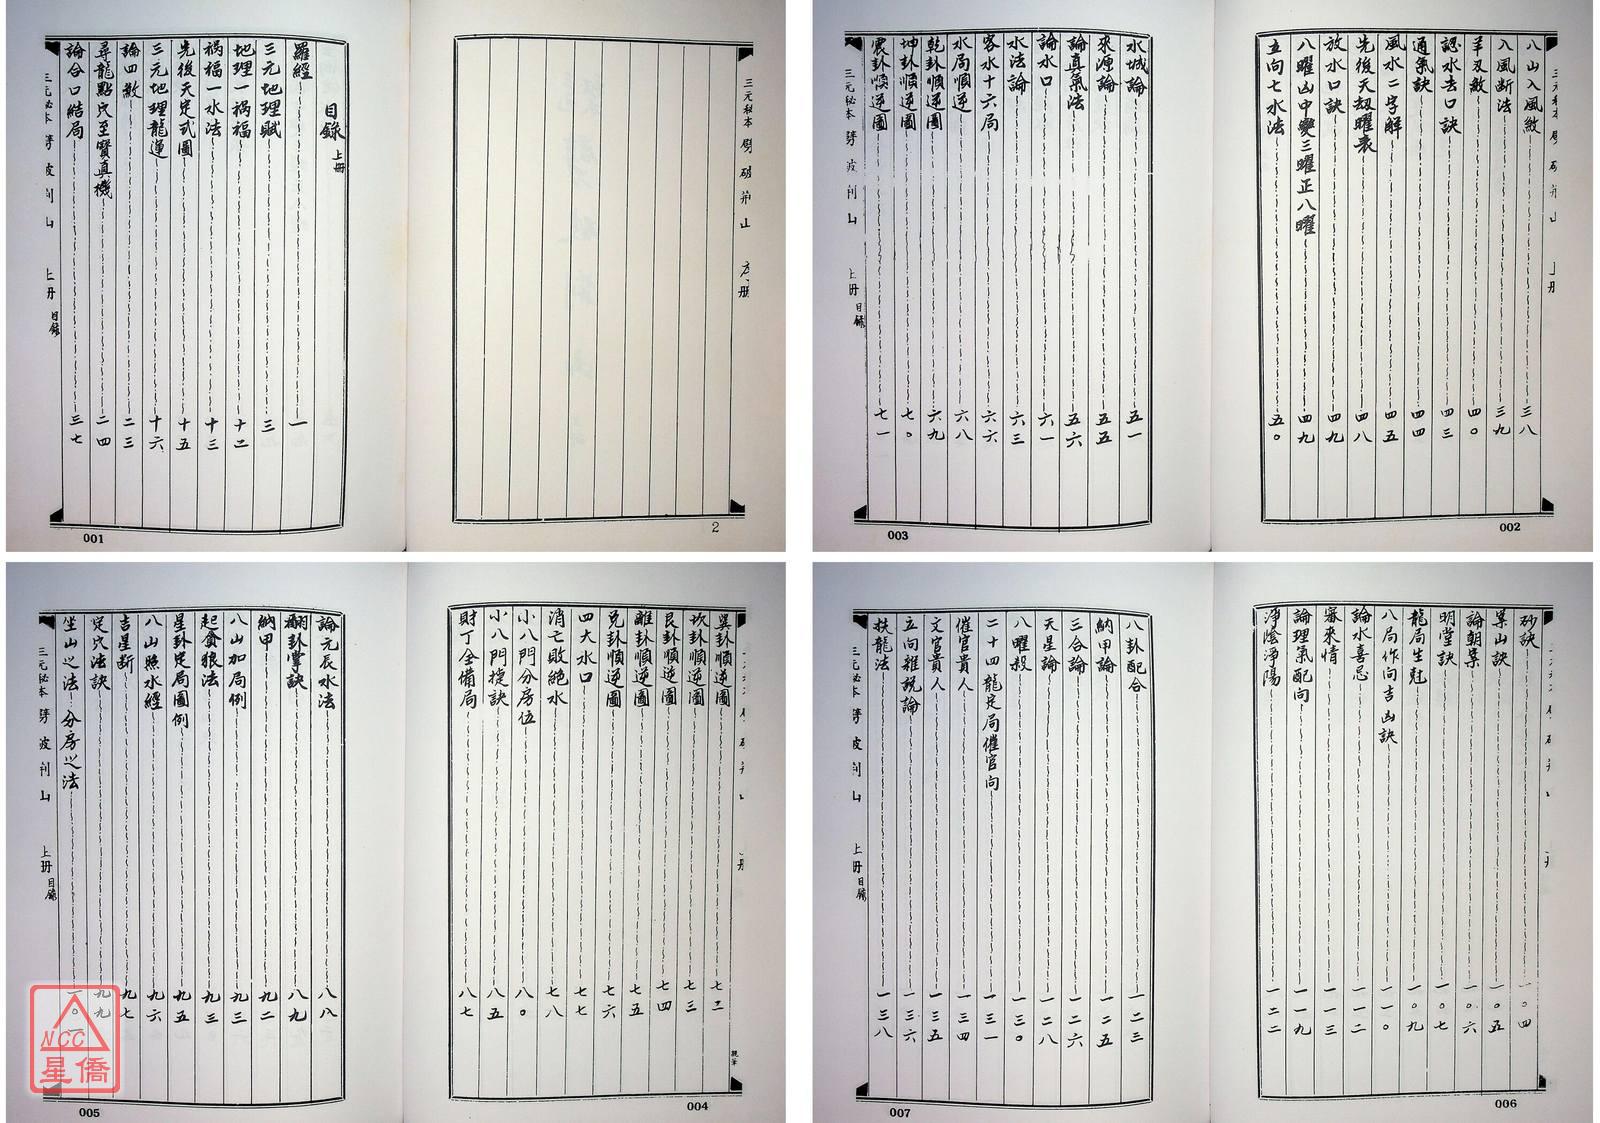 目錄 上冊
羅經 一
三元地理賦 三
地理一禍福 十二
禍福一水法 十三
先後天定式圖 十五
三元地理龍運 十六
論四煞 二三
尋龍點穴至寶真機 二四
論合口結局 三七
三元秘本
上冊 目錄
001
三元秘本 劈破荊山
2
八山入風煞 三八
入風斷法 三九
羊刃煞 四〇
認水去口訣 四三
通氣訣 四四
風水二字解 四五
先後天刼曜表 四八
放水口訣 四九
八曜凶中變三曜正八曜 四九
五向七水法 五〇
002
水城論 五一
來源論 五五
論真氣法 五六
論水口 六一
水法論 六三
客水十六局 六六
水局順逆 六八
乾卦順逆圖 六九
坤卦順逆圖 七〇
震卦順逆圖 七一
三元秘本
上冊 目錄
003
巽卦順逆圖 七二
坎卦順逆圖 七三
艮卦順逆圖 七四
離卦順逆圖 七五
兌卦順逆圖 七六
四大水口 七七
消亡敗絕水 七八
小八門分房位 八〇
小八門捷訣 八五
財丁全備局 八七
004
論元辰水法 八八
翻卦掌訣 八九
納甲 九二
八山加局例 九三
起貪狼法 九三
星卦定局圖例 九五
八山照水經 九六
吉星斷 九七
定穴法訣 九九
坐山之法 分房之法 一〇一
三元秘本
上冊 目錄
005
NCC
星僑
砂訣 一〇四
案山訣 一〇五
論朝案 一〇六
明堂訣 一〇七
龍局生尅 一〇九
八局作向吉凶訣 一一〇
論水喜忌 一一二
審來情 一一三
論理氣配向 一一九
淨陰淨陽 一二二
006
八卦配合 一二三
納甲論 一二五
三合論 一二六
天星論 一二八
八曜殺 一三〇
二十四龍定局催官向 一三一
催官貴人 一三四
文官貴人 一三五
立向雜說論 一三六
扶龍法 一三八
三元秘本
上冊 目錄
007